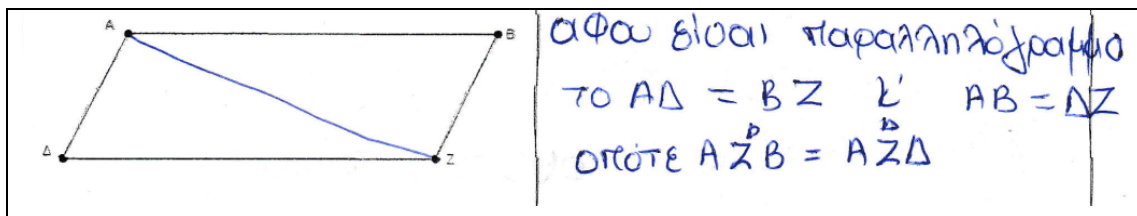 A
B
Δ
Z
αφου είσαι παραλληλόγραμμο
το ΑΔ = ΒΖ κ' ΑΒ = ΔΖ
οπότε ΑΖΒ = ΑΖΔ